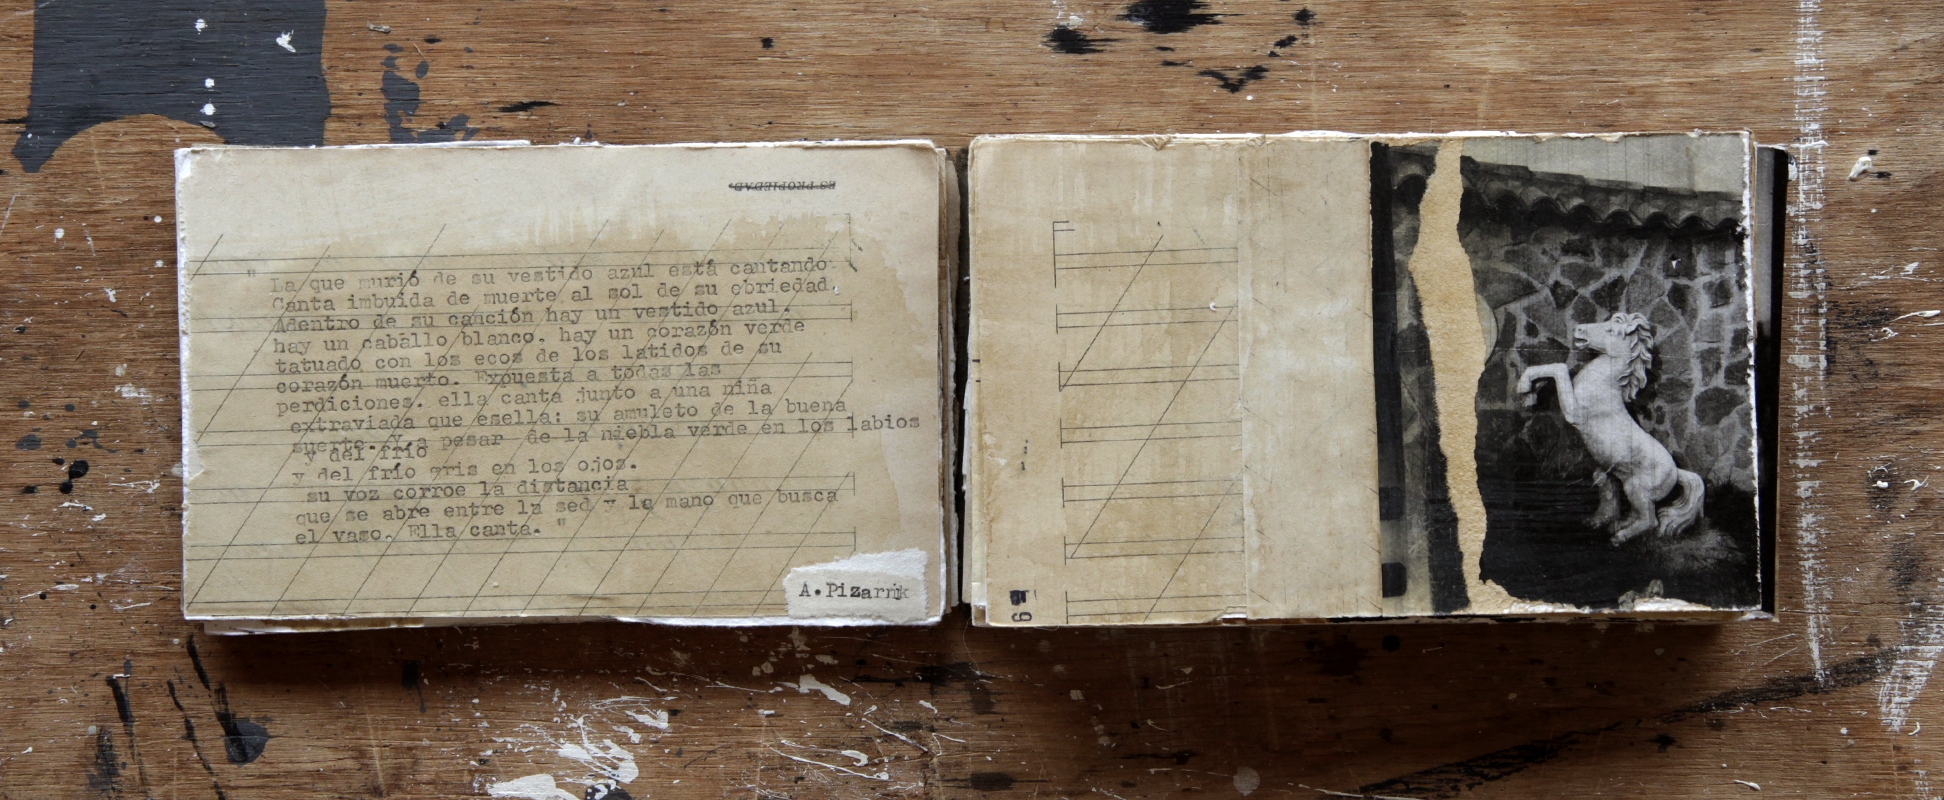 ES PROPIEDAD.
" La que murió de su vestido azul está cantando.
Canta imbuída de muerte al sol de su ebriedad.
Adentro de su canción hay un vestido azul.
hay un caballo blanco. hay un corazón verde
tatuado con los ecos de los latidos de su
corazón muerto. Expuesta a todas las
perdiciones. ella canta junto a una niña
extraviada que esella: su amuleto de la buena
suerte. Y a pesar de la niebla verde en los labios
y del frío
y del frío gris en los ojos.
su voz corroe la distancia
que se abre entre la sed y la mano que busca
el vaso. Ella canta. "
A.Pizarnik